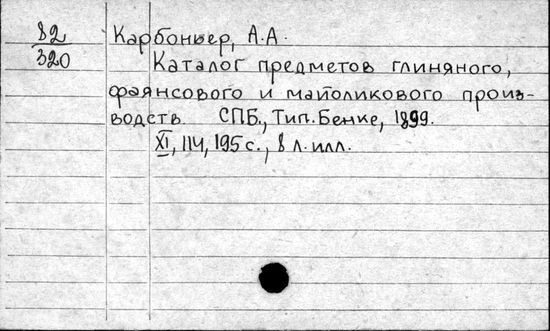 82
320
Карбоньер, А.А.
Каталог предметов глиняного,
фаянсового и майоликового произ-
водств. СПБ., Тип. Бенке, 1899.
XI, 114, 195 с., 8 л. илл.